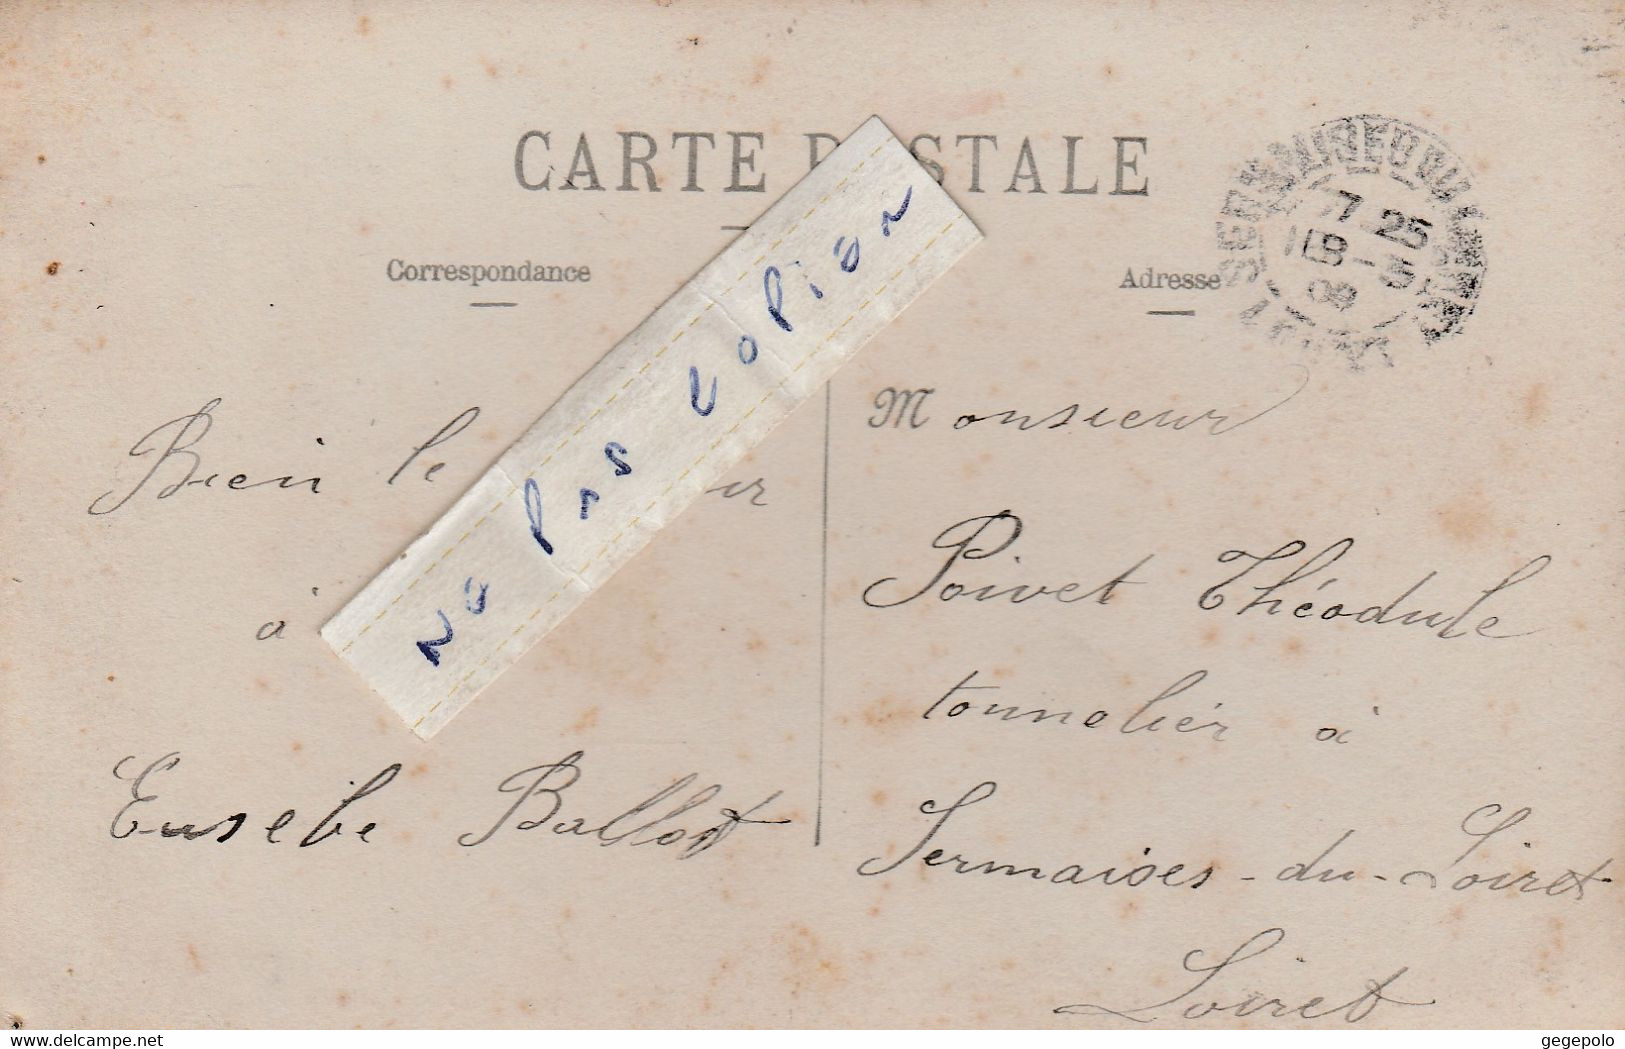 CARTE P STALE
Correspondance
Adresse
SERMAISES DU LOIRET
7 25
8 - 5
08
LOIRET
No Pas Copion
Bien le ur
à
Eusebe Ballot
Monsieur
Poivet Théodule
tonnelier à
Sermaises-du-Loiret
Loiret
www.delcampe.net
gegepolo